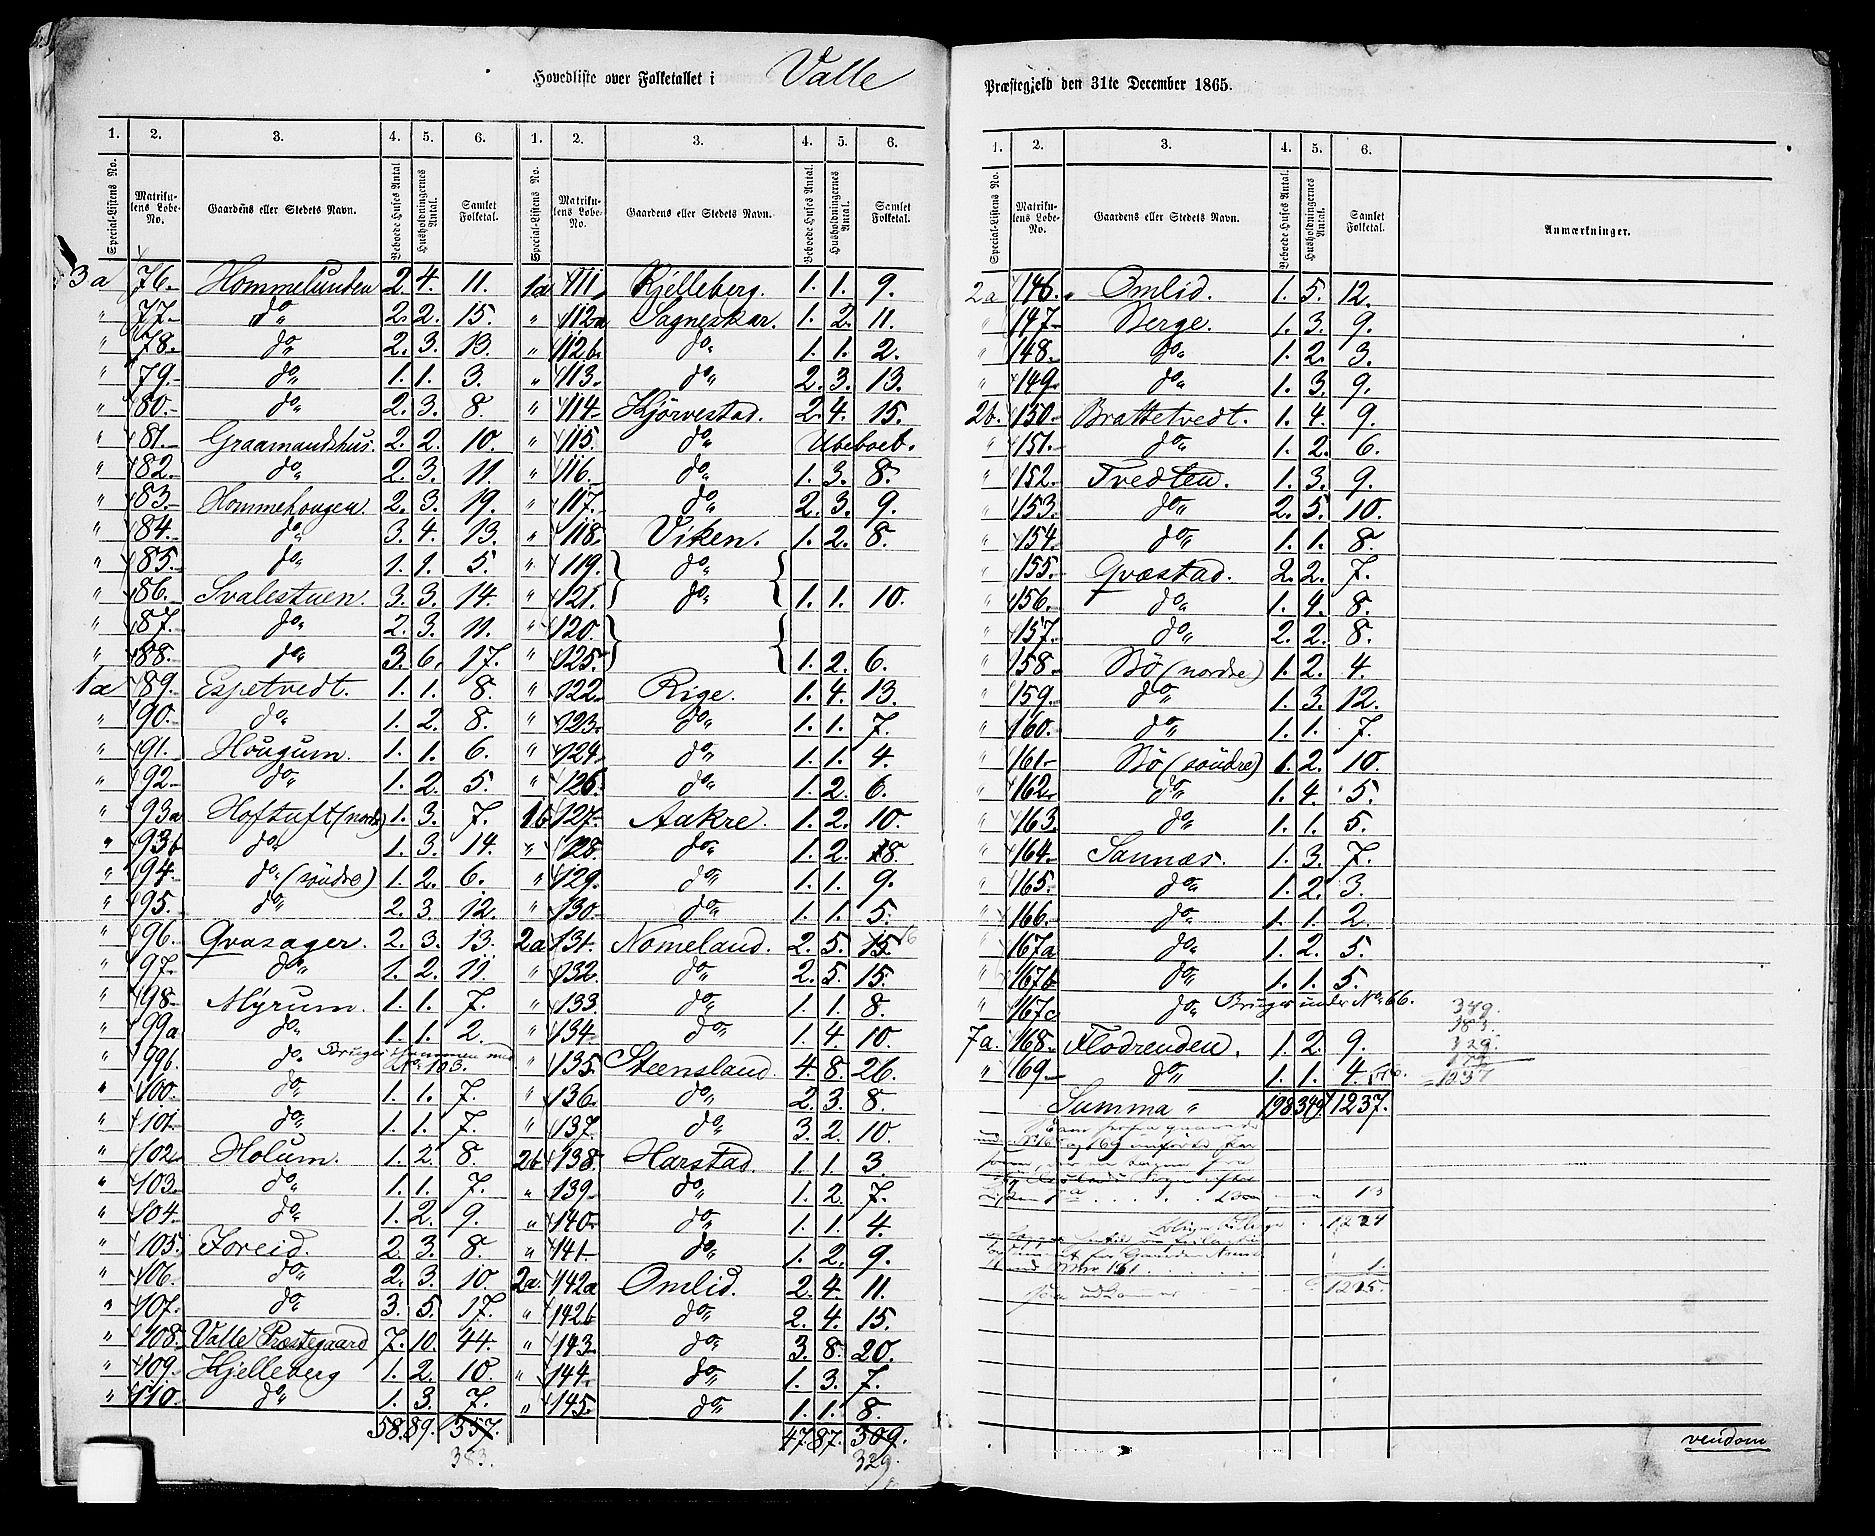 Hovedliste over Folketallet i Valle
Præstegjeld den 31te December 1865.
1. 2. 3. 4. 5. 6. 1. 2. 3. 4. 5. 6.
Special-Listens No. Matrikulens Løbe-No. Gaardens eller Stedets Navn. Beboede Huses Antal Husholdningernes Antal. Samlet Folketal. Special-Listens No. Matrikulens Løbe-No. Gaardens eller Stedets Navn. Beboede Huses Antal. Husholdningernes Antal. Samlet Folketal.
3a 76. Hommelunden 2. 4. 11.
" 77. do 2. 2. 15.
" 78. do 2. 3. 13.
" 79. do 1. 1. 3.
" 80. do 2. 3. 8.
" 81. Graamandshus. 2. 2. 10.
" 82. do 2. 3. 11.
" 83. Hommehougen. 2. 3. 19.
" 84. do 3. 4. 13.
" 85. do 1. 1. 5.
" 86. Svalestuen. 3. 3. 14.
" 87. do 2. 3. 11.
" 88. do 3. 6. 17.
1a 89. Espetvedt. 1. 1. 8.
" 90. do 1. 2. 8.
" 91. Hougum. 1. 1. 6.
" 92. do 1. 2. 5.
" 93a Hoftuft (nordre) 1. 3. 7.
" 93b do 1. 3. 14.
" 94. do (söndre) 1. 2. 6.
" 95. do 2. 3. 12.
" 96. Qvasager. 2. 3. 13.
" 97. do 1. 2. 11.
" 98. Myrum. 1. 1. 7.
" 99a do 1. 1. 2.
" 99b do Bruges sammen med No 103.
" 100. do 1. 1. 7.
" 101. do 1. 1. 7.
" 102. Holum. 1. 2. 8.
" 103. do 1. 1. 7.
" 104. do 1. 2. 9.
" 105. Foreid. 2. 3. 8.
" 106. do 2. 3. 10.
" 107. do 3. 5. 17.
" 108. Valle Præstegaard 7. 10. 44.
" 109. Kjelleberg 1. 2. 10.
" 110. do 1. 3. 7.
58. 89. 357.
383.
1a 111. Kjelleberg. 1. 1. 9.
" 112a Sagneskar. 1. 2. 11.
" 112b. do 1. 1. 2.
" 113. do 2. 3. 13.
" 114. Kjörvestad. 2. 4. 15.
" 115. do Ubeboet.
" 116. do 1. 3. 8.
" 117. do 2. 3. 9.
" 118. Viken. 1. 2. 8.
" 119. do
" 121. do 1. 1. 10.
" 120.
" 125. 1. 2. 6.
" 122. Rige. 1. 4. 13.
" 123. do 1. 1. 7.
" 124. do 1. 1. 4.
" 126. do 1. 2. 6.
1b 127. Aakre. 1. 2. 10.
" 128. do 1. 2. 8.
" 129. do 1. 1. 9.
" 130. do 1. 1. 5.
2a 131. Nomeland. 2. 5. 15. 16
" 132. do 2. 5. 15.
" 133. do 1. 1. 8.
" 134. do 1. 4. 10.
" 135. Steensland. 4. 8. 26.
" 136. do 2. 3. 8.
" 137. do 3. 2. 10.
2b 138. Harstad. 1. 1. 3.
" 139. do 1. 2. 7.
" 140. do 1. 1. 4.
" 141. do 1. 2. 9.
2a 142a Omlid. 2. 4. 11.
" 142b do 2. 4. 15.
" 143. do 3. 8. 20.
" 144. do 1. 3. 7.
" 145. do 1. 1. 8.
47. 87. 309.
329.
1. 2. 3. 4. 5. 6.
Special-Listens No. Matrikulens Løbe-No. Gaardens eller Stedets Navn. Beboede Huses Antal. Husholdningernes Antal. Samlet Folketal. Anmærkninger.
2a 146. Omlid. 1. 5. 12.
" 147. Berge. 1. 3. 9.
" 148. do 1. 2. 3.
" 149. do 1. 3. 9.
2b. 150. Brattetvedt. 1. 4. 9.
" 151. do 1. 2. 6.
" 152. Tvedten. 1. 3. 9.
" 153. do 2. 5. 10.
" 154. do 1. 1. 8.
" 155. Qvæstad. 2. 2. 7.
" 156. do 1. 4. 8.
" 157. do 2. 2. 8.
" 158. Bö (nordre) 1. 2. 4.
" 159. do 1. 3. 12.
" 160. do 1. 1. 7.
" 161. Bö (söndre) 1. 2. 10.
" 162. do 1. 4. 5.
" 163. do 1. 1. 5.
" 164. Sannæs. 1. 3. 7.
" 165. do 1. 2. 3.
" 166. do 1. 1. 2.
" 167a do 1. 2. 5.
" 167b do 1. 1. 5.
" 167c do Bruges under No 66.
7a. 168. Flodrenden. 1. 2. 9.
" 169. do 1. 1. 4.
Summa " 198 349 1237.
349.
383.
329.
176
= 1237
13
1224
1.
1225.
vendom